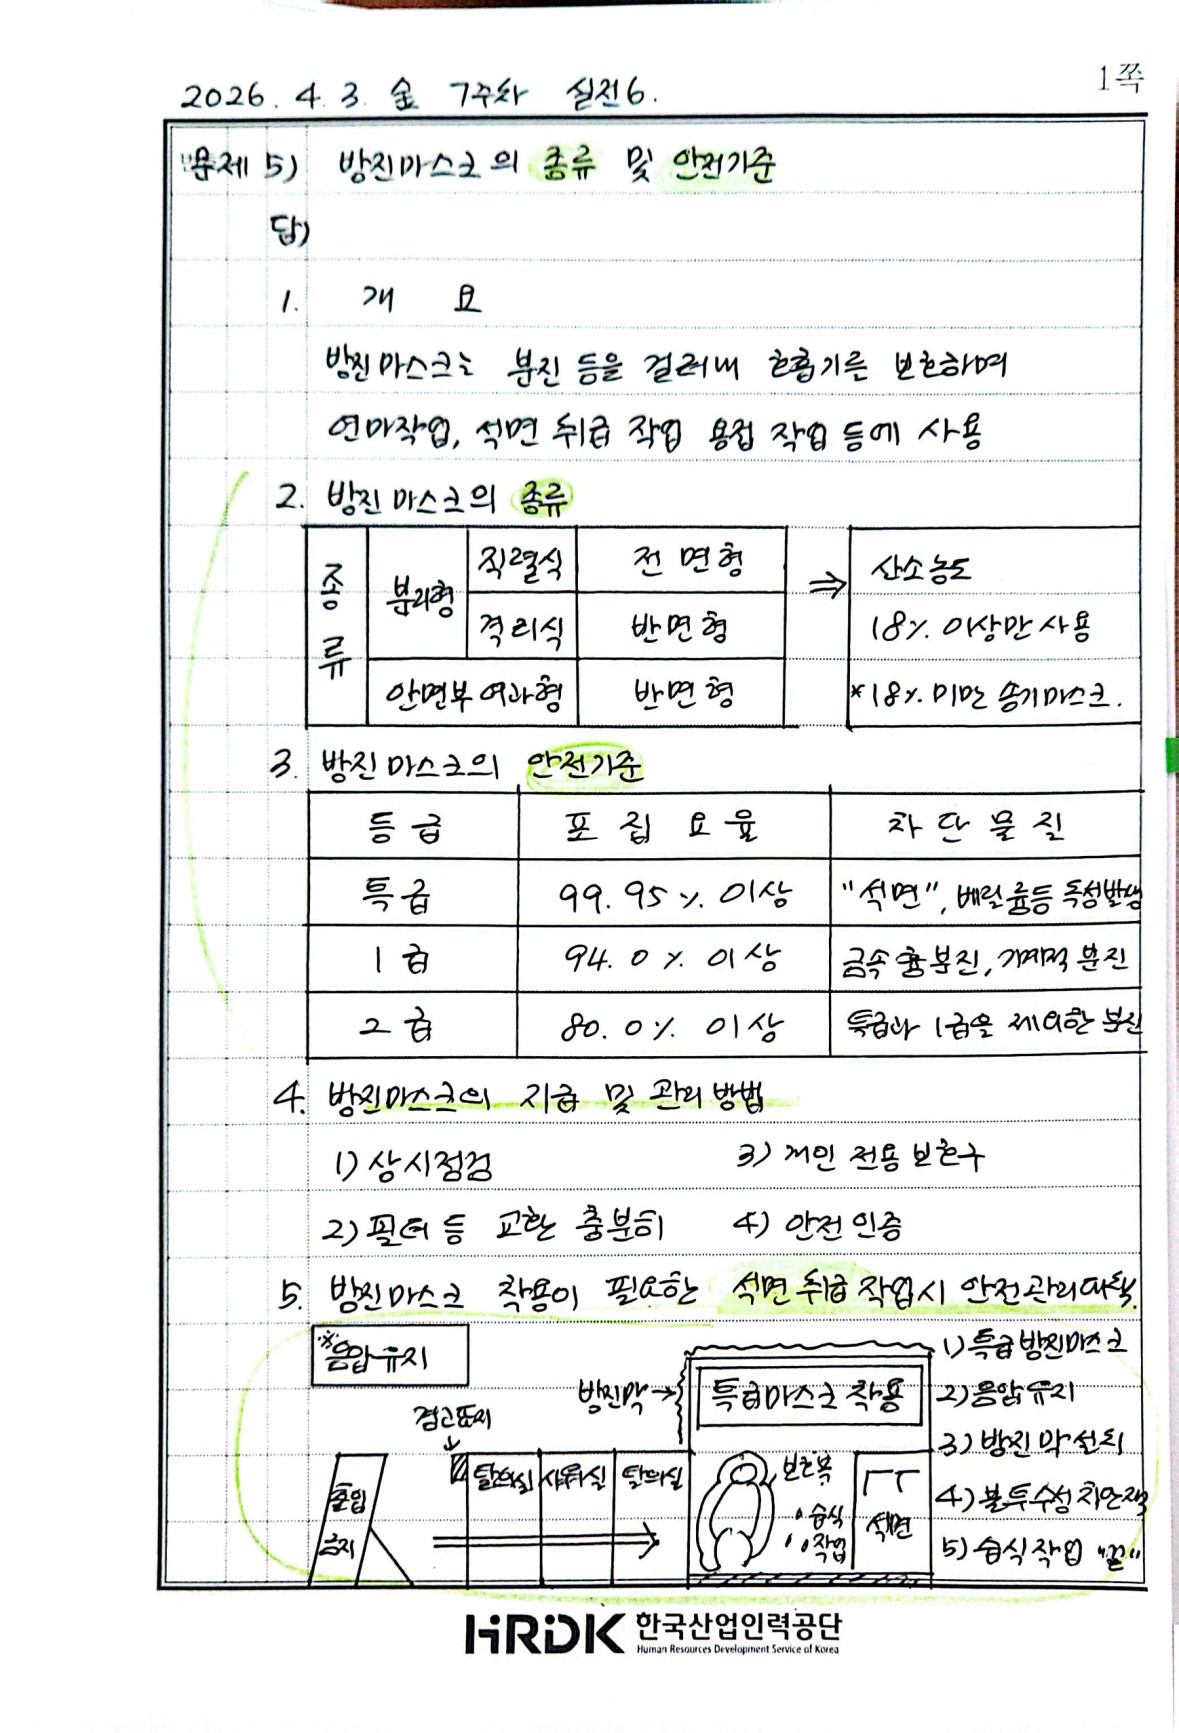 1쪽
2026. 4. 3. 金 7주차 실전6.
문제 5) 방진마스크의 종류 및 안전기준
답)
1. 개 요
방진마스크는 분진 등을 걸러내 호흡기를 보호하며
연마작업, 석면 취급 작업 용접 작업 등에 사용
2. 방진마스크의 종류
종류 분리형 직렬식 전면형 ⇒ 산소농도
격리식 반면형 18% 이상만 사용
안면부 여과형 반면형 *18% 미만 송기마스크.
3. 방진마스크의 안전기준
등급 포집효율 차단물질
특급 99.95% 이상 "석면", 베릴륨등 독성발생
1급 94.0% 이상 금속흄분진, 기계적 분진
2급 80.0% 이상 특급과 1급을 제외한 분진
4. 방진마스크의 지급 및 관리방법
1) 상시점검 3) 개인 전용 보호구
2) 필터 등 교환 충분히 4) 안전인증
5. 방진마스크 착용이 필요한 석면 취급 작업시 안전관리대책.
※음압유지
경고표지
출입금지
탈의실 샤워실 탈의실
방진막→
특급마스크 착용
보호복
습식
작업
석면
1) 특급방진마스크
2) 음압유지
3) 방진막설치
4) 불투수성 차단재
5) 습식작업 "끝"
HRDK 한국산업인력공단
Human Resources Development Service of Korea